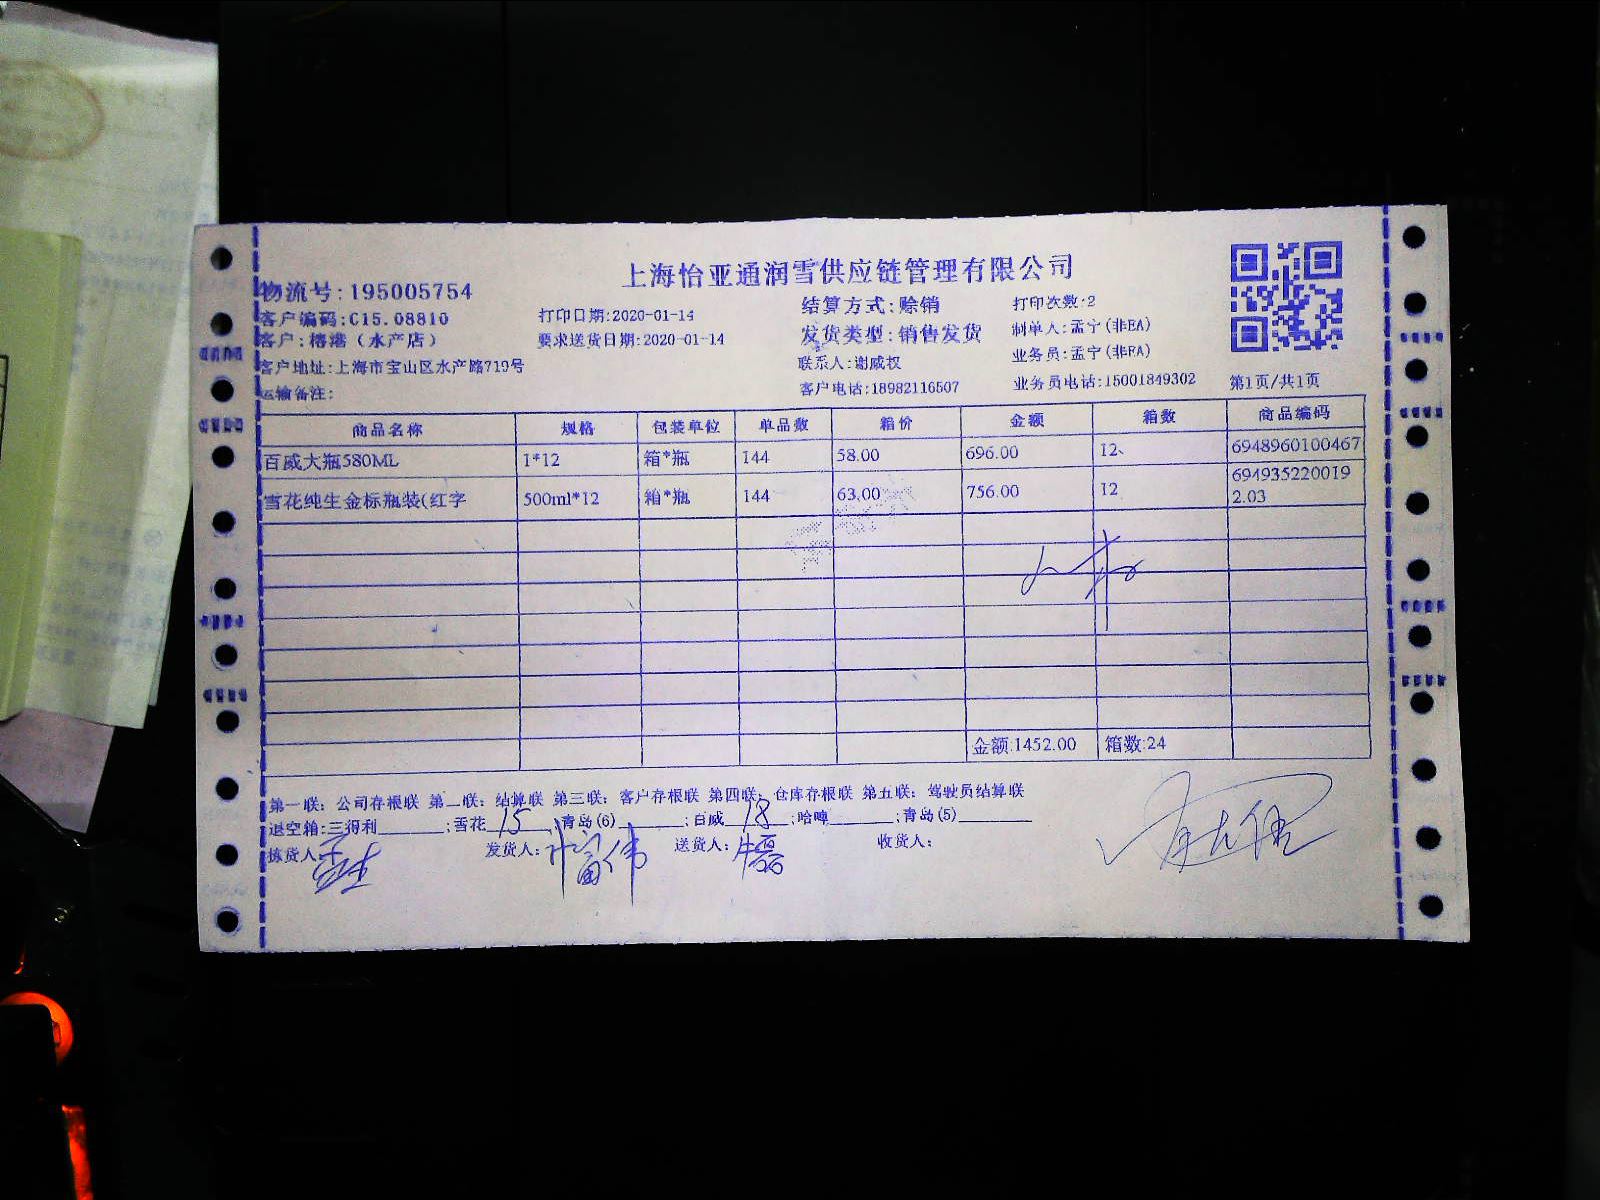 上海怡亚通润雪供应链管理有限公司
物流号:195005754
客户编码:C15.08810
客户:椿塔（水产店）
客户地址:上海市宝山区水产路719号
运输备注:
打印日期:2020-01-14
要求送货日期:2020-01-14
结算方式:赊销
发货类型:销售发货
联系人:谢威权
客户电话:18982116507
打印次数:2
制单人:孟宁(非EA)
业务员:孟宁(非EA)
业务员电话:15001849302
第1页/共1页
商品名称 规格 包装单位 单品数 箱价 金额 箱数 商品编码
百威大瓶580ML 1*12 箱*瓶 144 58.00 696.00 12 6948960100467
雪花纯生金标瓶装(红字 500ml*12 箱*瓶 144 63.00 756.00 12 694935220019
2.03
金额:1452.00 箱数:24
第一联: 公司存根联 第二联: 结算联 第三联: 客户存根联 第四联: 仓库存根联 第五联: 驾驶员结算联
退空箱:三得利______;雪花 15 ;青岛(6)______;百威 18 ;哈啤______;青岛(5)______
拣货人: 发货人: 送货人:牛磊 收货人: